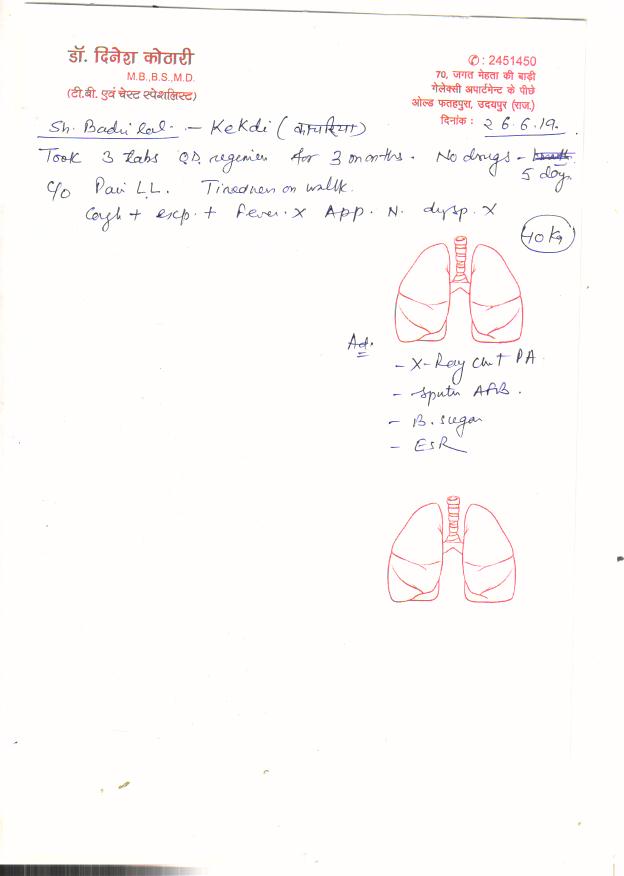 डॉ. दिनेश कोठारी
M.B.,B.S.,M.D.
(टी.बी. एवं चेस्ट स्पेशलिस्ट)
✆ : 2451450
70, जगत मेहता की बाड़ी
गेलेक्सी अपार्टमेन्ट के पीछे
ओल्ड फतहपुरा, उदयपुर (राज.)
दिनांक : 26.6.19.
Sh. Badri Lal. - Kekdi
Took 3 tabs O.D. regimen for 3 months. No drugs - 5 day.
C/o Pain L.L. Tiredness on walk.
Cough + exp. + Fever. X App. N. dysp. X
40 Kg
Ad.
- X-Ray Chest PA
- Sputm AFB.
- B. sugar
- ESR